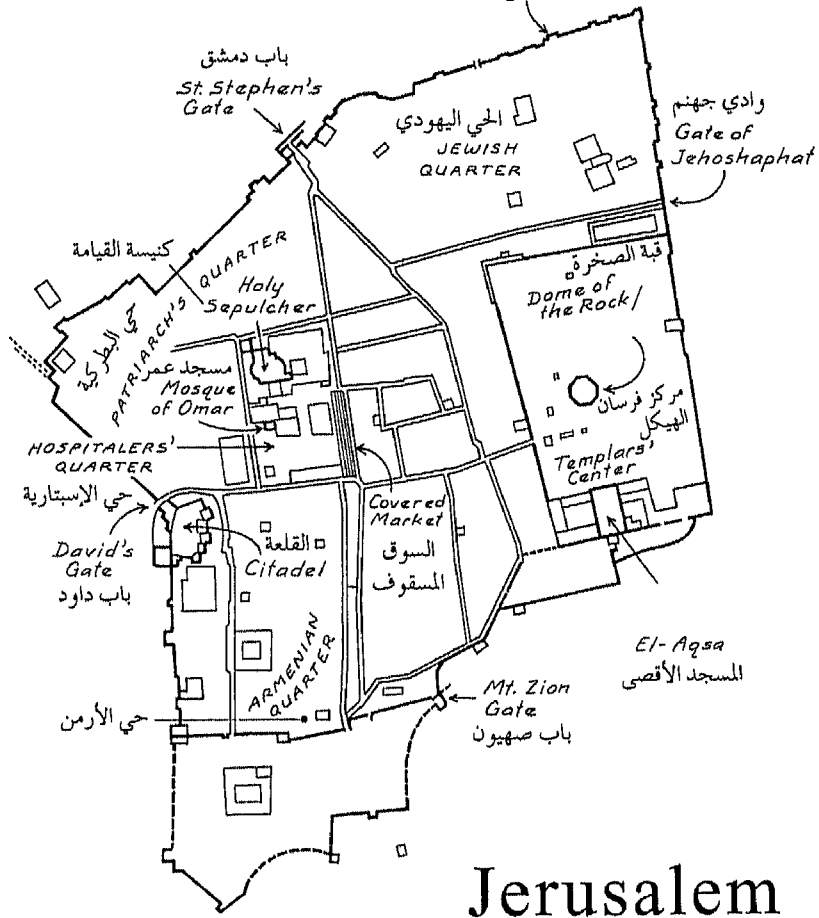 باب دمشق
St. Stephen's
Gate
الحي اليهودي
JEWISH
QUARTER
وادي جهنم
Gate of
Jehoshaphat
كنيسة القيامة
PATRIARCH'S QUARTER
حي البطركية
Holy
Sepulcher
قبة الصخرة
Dome of
the Rock
مسجد عمر
Mosque
of Omar
مركز فرسان
الهيكل
Templars'
Center
HOSPITALERS'
QUARTER
حي الإسبتارية
Covered
Market
السوق
المسقوف
David's
Gate
باب داود
القلعة
Citadel
El-Aqsa
المسجد الأقصى
ARMENIAN
QUARTER
حي الأرمن
Mt. Zion
Gate
باب صهيون
Jerusalem